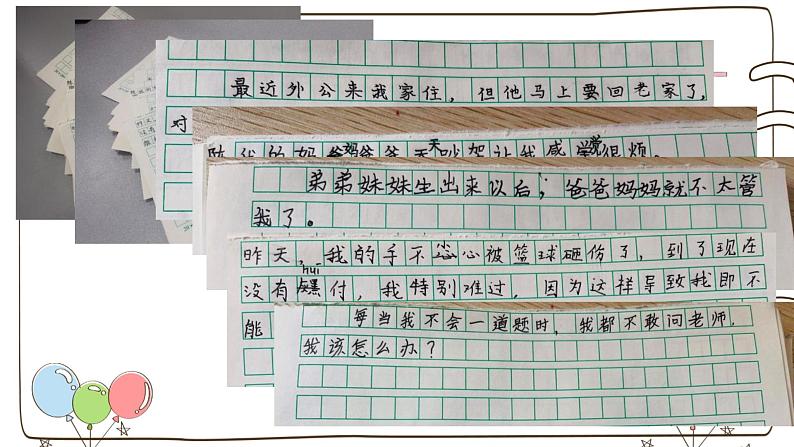 最近外公来我家住，但他马上要回老家了，
对
陪我的妈妈爸爸天天吵架让我感觉很烦。
弟弟妹妹生出来以后；爸爸妈妈就不太管
我了。
昨天，我的手不小心被篮球砸伤了，到了现在
huī
没有付，我特别难过，因为这样导致我即不
能
每当我不会一道题时，我都不敢问老师.
我该怎么办？